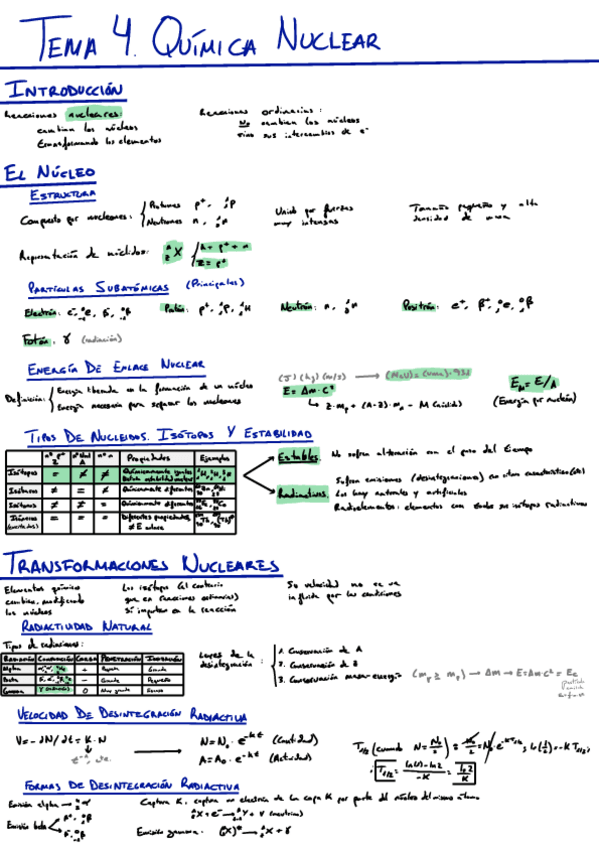 TEMA 4. QUÍMICA NUCLEAR
INTRODUCCIÓN
Reacciones nucleares:
cambian los núcleos
transformando los elementos
Reacciones ordinarias:
No cambian los núcleos
sino sus intercambios de e⁻
EL NÚCLEO
ESTRUCTURA
Compuesto por nucleones:
Protones p⁺, ¹₁p
Neutrones n, ¹₀n
Unido por fuerzas
muy intensas
Tamaño pequeño y alta
densidad de masa
Representación de núclidos: ᴬ_Z X
A = p⁺ + n
Z = p⁺
PARTÍCULAS SUBATÓMICAS (Principales)
Electrón:
Protón: p⁺, ¹₁p, ¹₁H
Neutrón: n, ¹₀n
Positrón: e⁺, β⁺,
Fotón: γ (radiación)
ENERGÍA DE ENLACE NUCLEAR
Definición:
Energía liberada en la formación de un núcleo
Energía necesaria para separar los nucleones
(J) (kg) (m/s)
E = Δm·c²
Z·mp + (A-Z)·mn - M
Eₙ = E/A
(Energía por nucleón)
TIPOS DE NUCLEIDOS. ISÓTOPOS Y ESTABILIDAD
Propiedades Ejemplos
Isótopos = ≠ ≠ Químicamente iguales
Isóbaros ≠ = ≠ Químicamente diferentes
Isótonos ≠ ≠ = Químicamente diferentes
Isómeros = = = Diferentes propiedades,
≠ E enlace
Estables. No sufren alteración con el paso del tiempo
Radinativos. Sufren emisiones (desintegraciones)
Los hay naturales y artificiales
Radioelementos: elementos con todos sus isótopos radiactivos
TRANSFORMACIONES NUCLEARES
Elementos químicos
cambian, modificando
los núcleos
Los isótopos (al contrario
que en reacciones ordinarias)
Sí importan en la reacción
Su velocidad no se ve
influida por las condiciones
RADIACTIVIDAD NATURAL
Tipos de radiaciones:
RADIACIÓN COMPOSICIÓN CARGA PENETRACIÓN IONIZACIÓN
Alpha + Pequeña Grande
Beta - Grande Pequeña
Gamma 0 Muy grande Escasa
Leyes de la
desintegración:
1. Conservación de A
2. Conservación de Z
3. Conservación masa-energía
VELOCIDAD DE DESINTEGRACIÓN RADIACTIVA
V = - dN/dt = K·N
N = N₀·e^(-kt) (Cantidad)
A = A₀·e^(-kt) (Actividad)
FORMAS DE DESINTEGRACIÓN RADIACTIVA
Emisión alpha → ⁴₂α
Emisión beta
Captura K: captura un electrón de la capa K por parte del núcleo del mismo átomo
Emisión gamma: